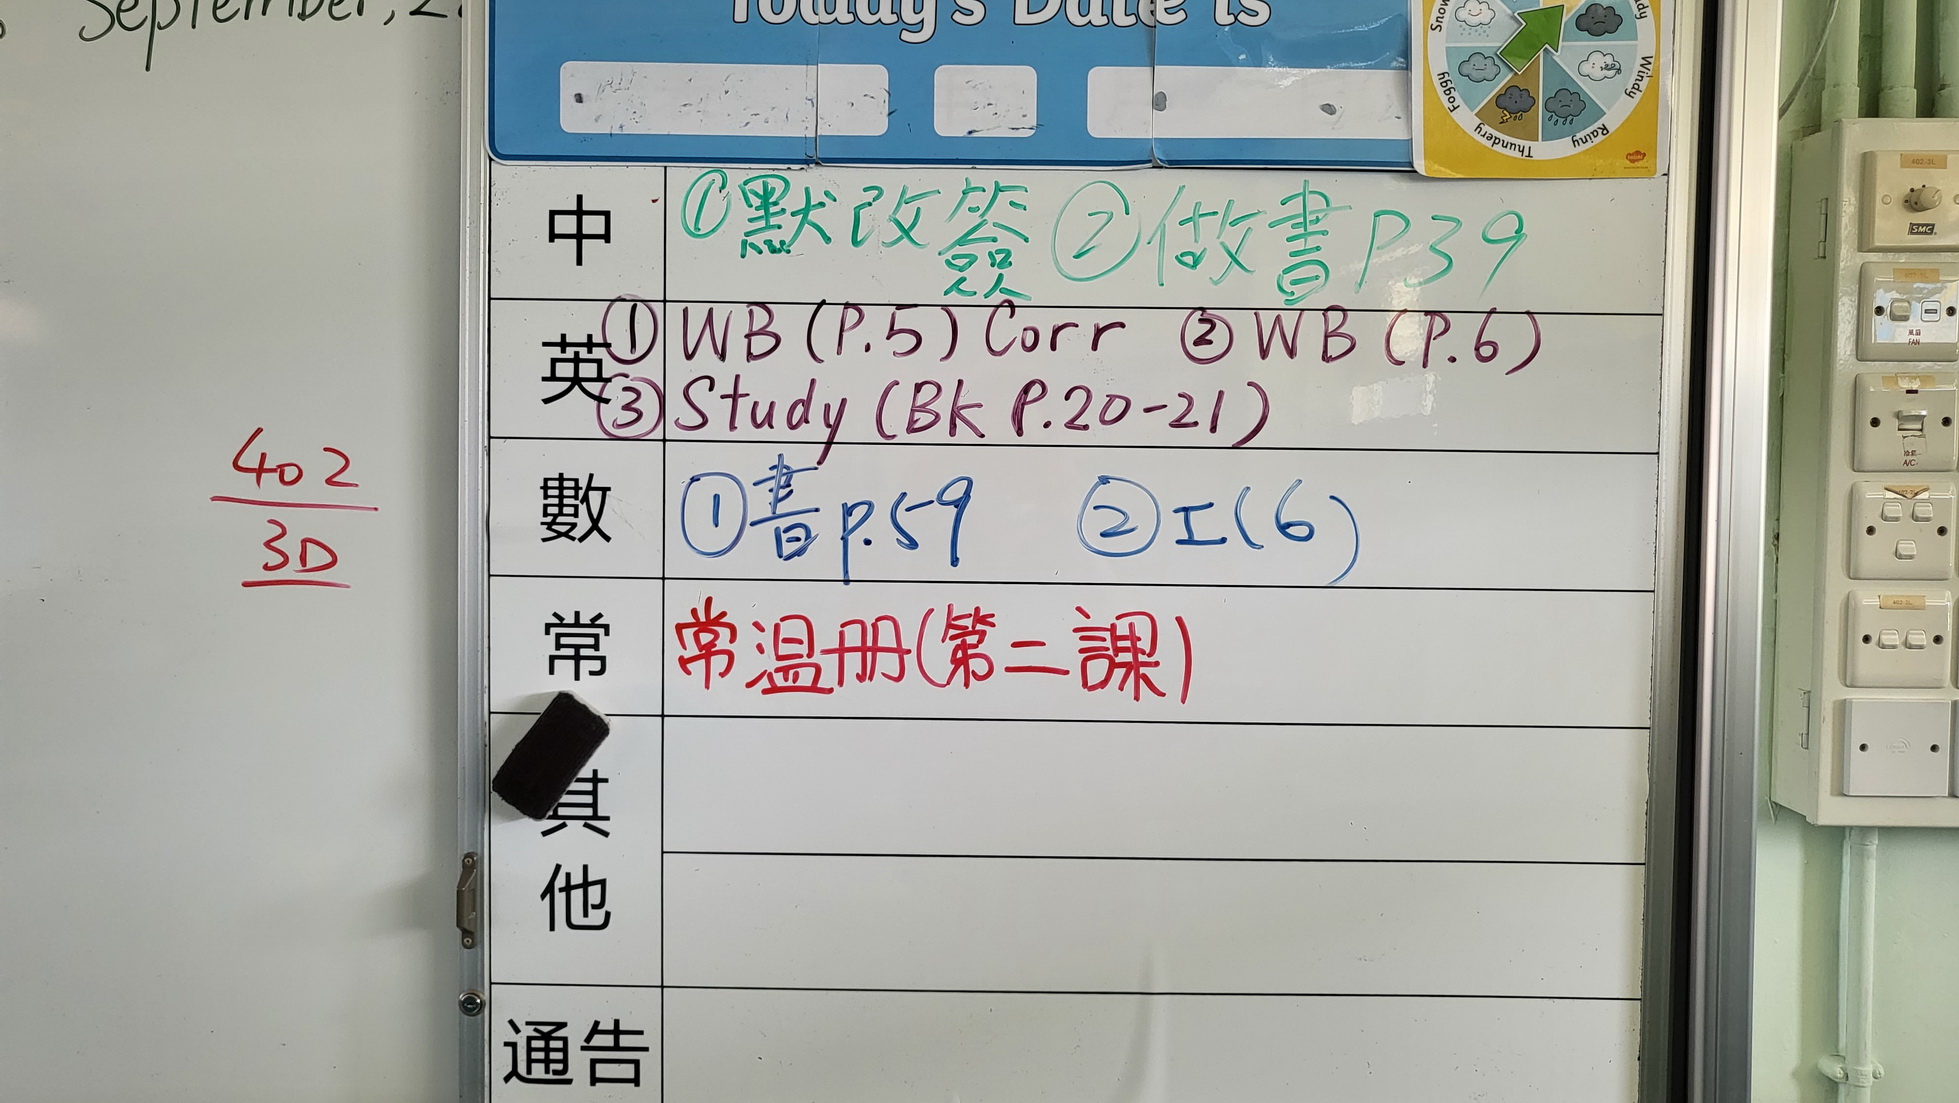 September, 2
Today's Date is
Snow
Windy
Rainy
Thundery
Foggy
中 ①默改簽 ②做書P39
英 ①WB (P.5) Corr ②WB (P.6)
③Study (Bk P.20-21)
數 ①書p.59 ②I(6)
常 常温册(第二課)
其他
通告
402
3D
SMC
風扇
FAN
A/C